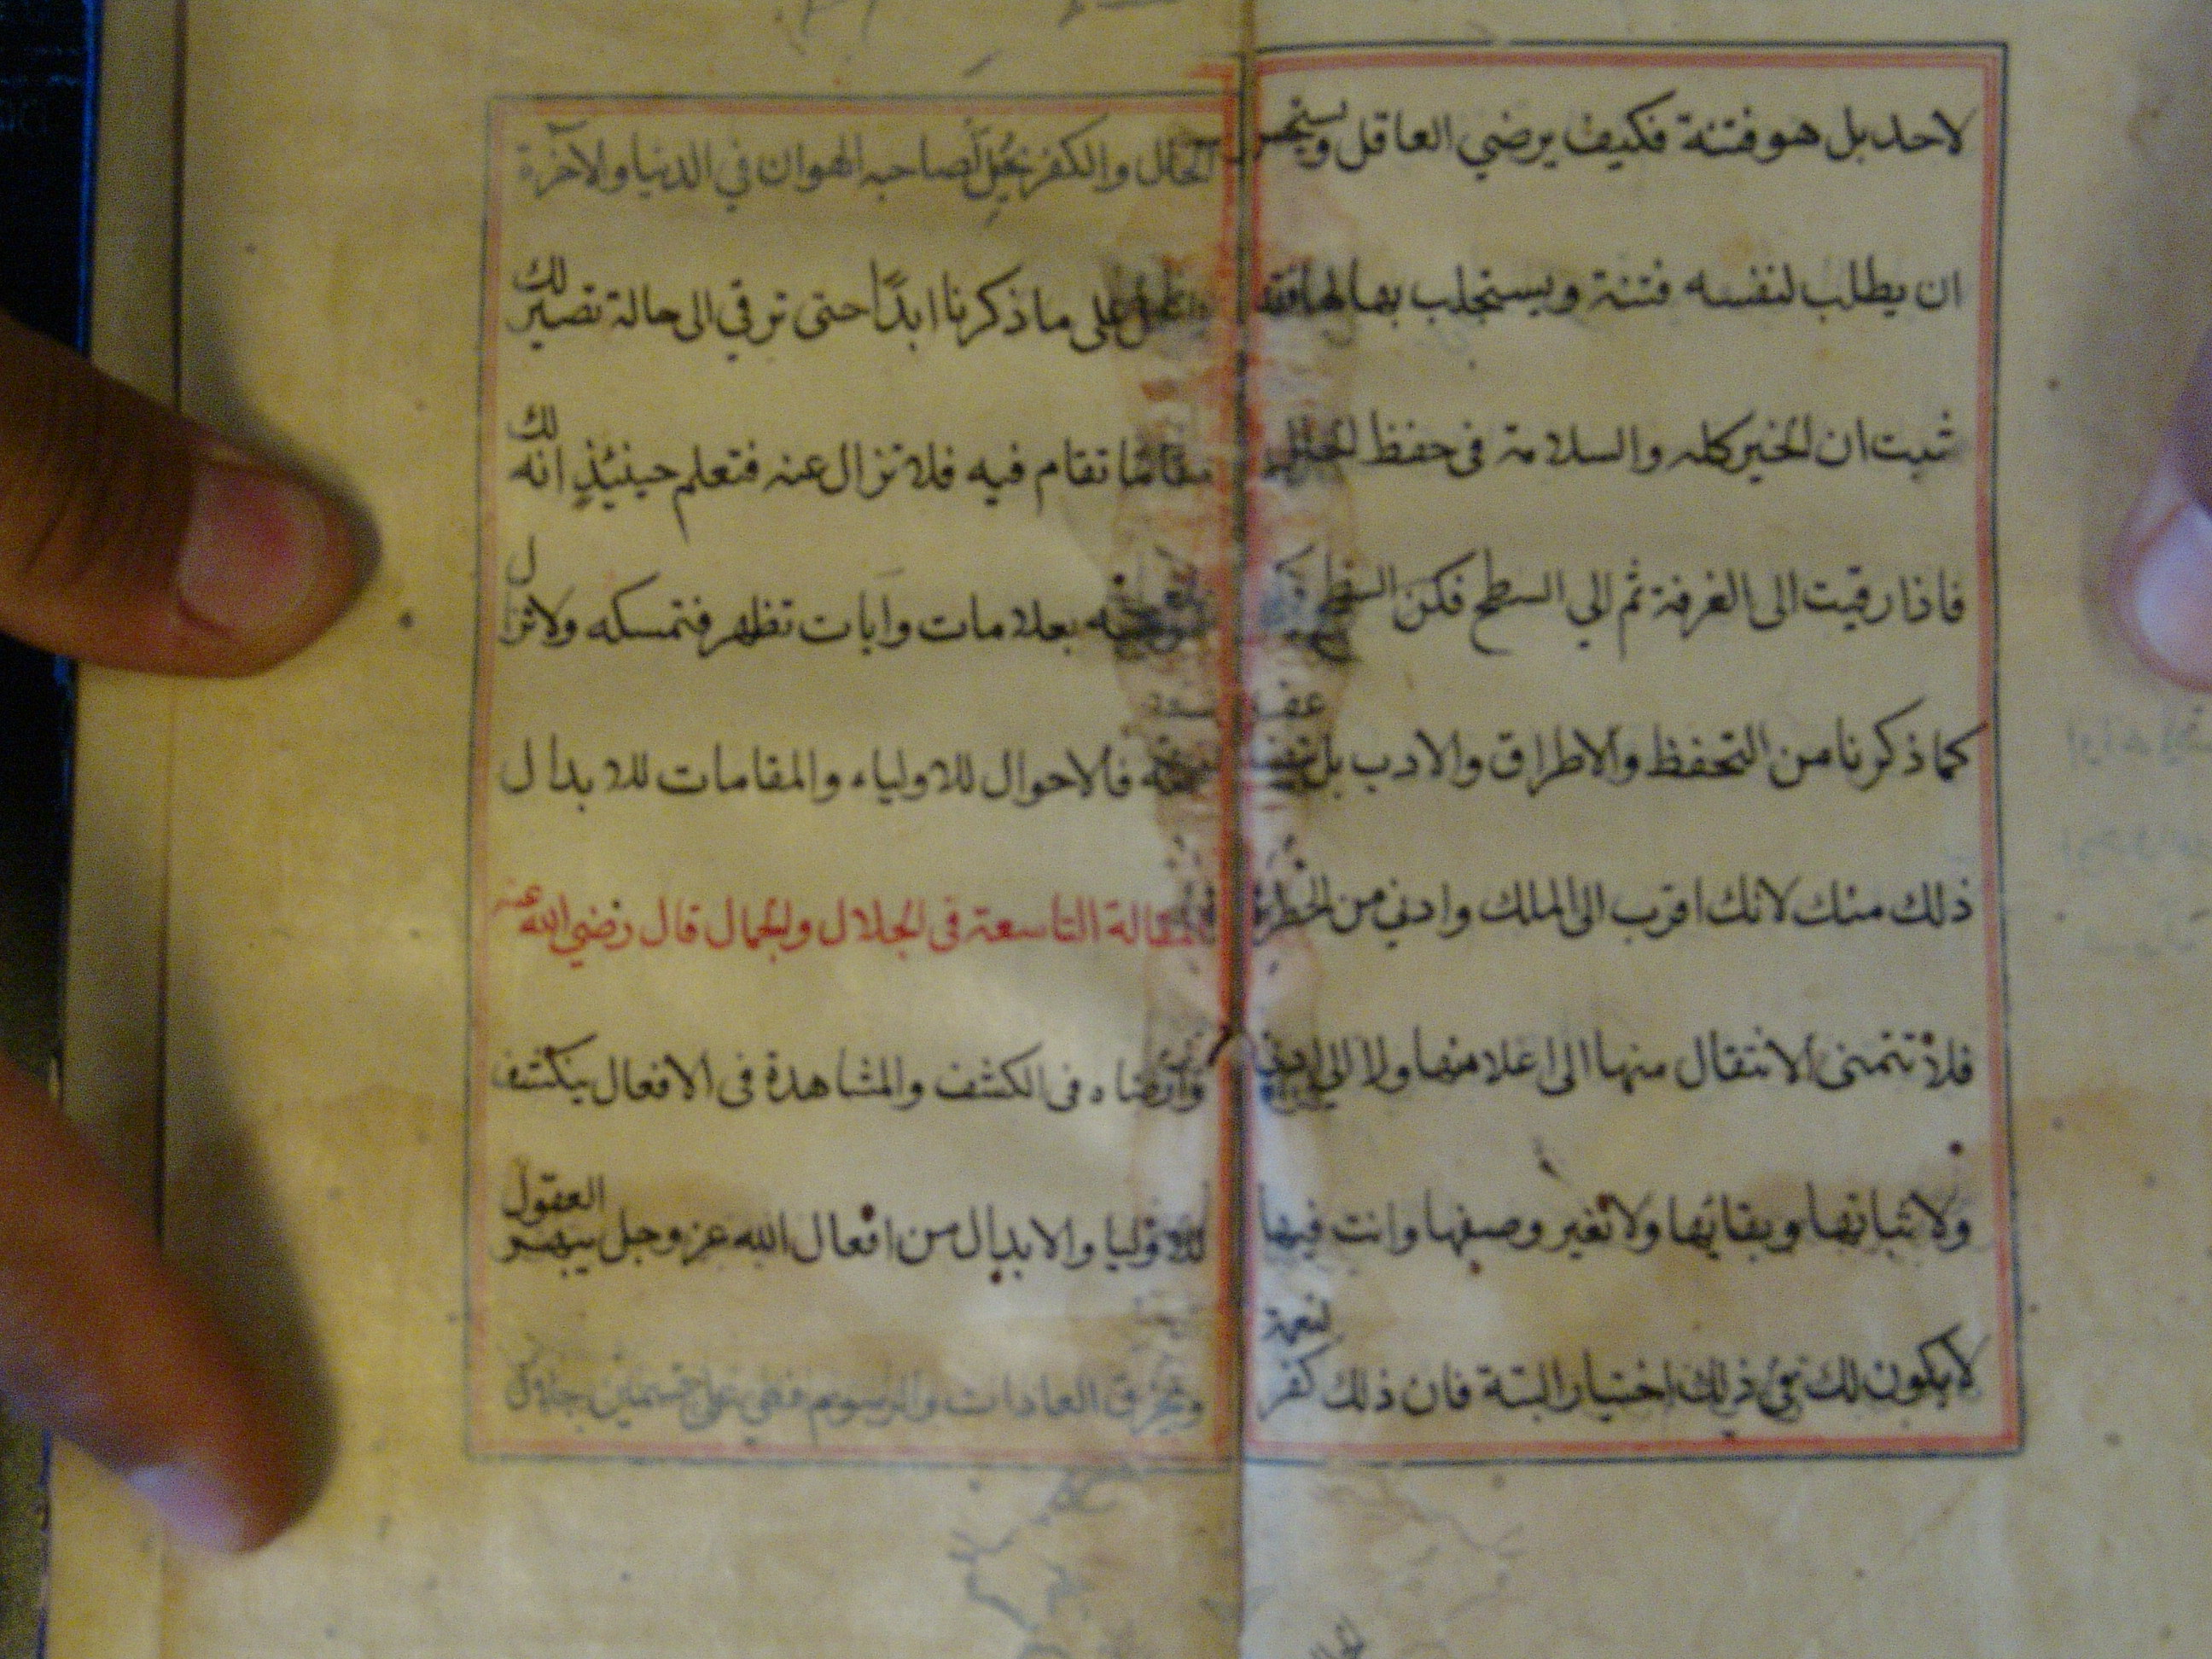 لاحد بل هو فتنة فكيف يرضي العاقل ويستحسن
ان يطلب لنفسه فتنة ويستجلب بها لها فقد
ثبت ان الخير كله والسلامة فى حفظ الحال
فاذا رقيت الى الغرفة ثم الي السطح فكن
كما ذكرنا من التحفظ والاطراق والادب بل
ذلك منك لانك اقرب الى الملك وادني من الخطر
فلا تتمنى الانتقال منها الى اعلا منها ولا الي ادني
ولا ثباتها وبقائها ولا تغير وصفها وانت فيها
لا يكون لك في ذلك اختيار البتة فان ذلك كفر لنعمة
الحال والكفر يُحِلّ لصاحبه الهوان في الدنيا والاخرة
على ما ذكرنا ابدًا حتى ترقي الى حالة تصير لك
مقاما تقام فيه فلا تزال عنه فتعلم حينئذٍ انه لك
بعلامات وايات تظهر فتمسكه ولا تزال
عنه فالاحوال للاولياء والمقامات للابدال
المقالة التاسعة فى الجلال والجمال قال رضي الله عنه
وارضاه فى الكشف والمشاهدة فى الافعال ينكشف
للاوليا والابدال من افعال الله عز وجل يبهر العقول
ويخرق العادات والرسوم فهي على قسمين جلال